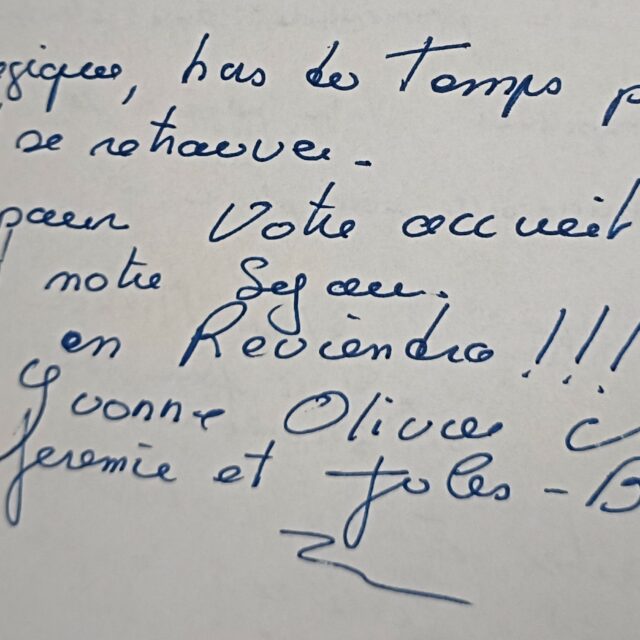 giques, hors du Temps p
se retrouver.
pour Votre accueil
notre Sejour.
en Reviendra !!!
Yvonne Olivier C
Jeremie et Jules - B